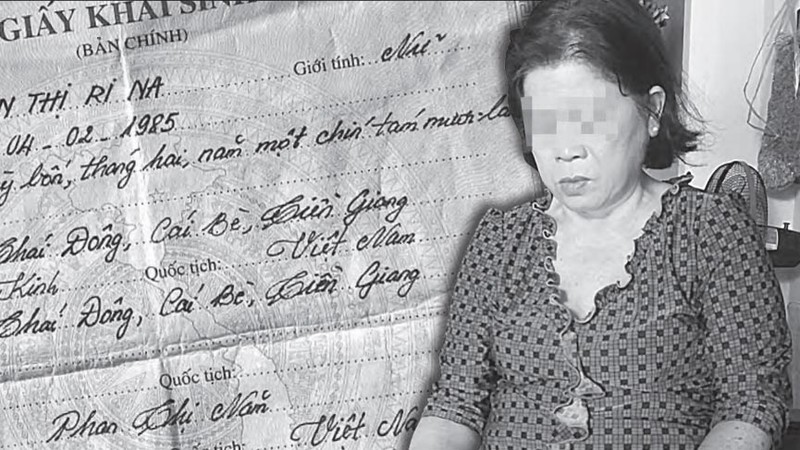 GIẤY KHAI SINH
(BẢN CHÍNH)
Giới tính: Nữ
N THỊ RI NA
04-02-1985
bốn, tháng hai, năm một chín tám mươi lă
Thái Đông, Cái Bè, Tiền Giang
Kinh Quốc tịch: Việt Nam
Thái Đông, Cái Bè, Tiền Giang
Quốc tịch:
Phan Thị Năm
Quốc tịch: Việt Na